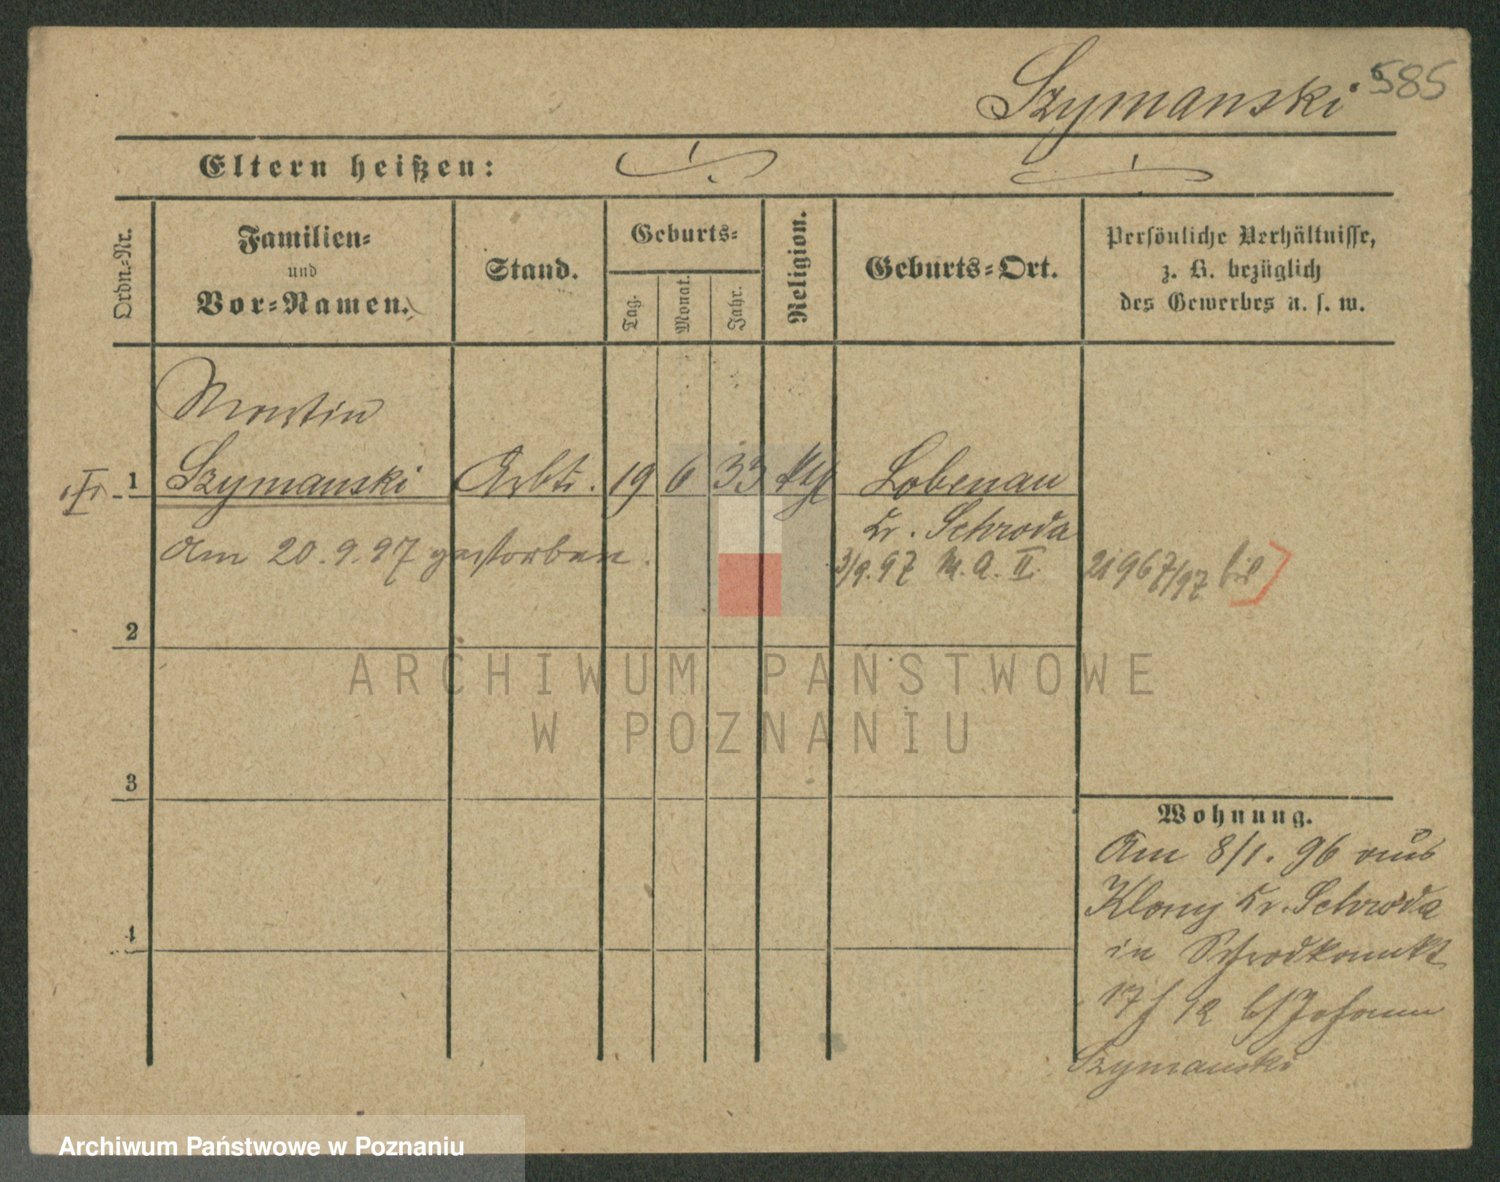 Szymanski 585
Eltern heißen:
Ordn.-Nr.
Familien-
und
Vor-Namen.
Stand.
Geburts-
Tag.
Monat.
Jahr.
Religion.
Geburts-Ort.
Persönliche Verhältnisse,
z. B. bezüglich
des Gewerbes u. s. w.
Martin
1 Szymanski Arbtr. 19 6 33 ktl Lobenau
Kr. Schroda
Am 20.9.97 gestorben.
3/9.97 M.A. II.
21967/97
2
3
4
Wohnung.
Am 8/1. 96 aus
Klony Kr. Schroda
in
17 12 b/Johann
Szymanski
ARCHIWUM PAŃSTWOWE
W POZNANIU
Archiwum Państwowe w Poznaniu